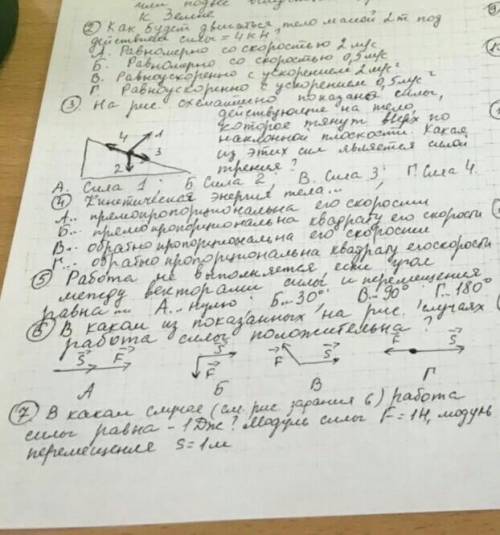 к Земле
② Как будет двигаться тело массой 2т под
действием силы = 4кН?
А. Равномерно со скоростью 2 м/с
Б. Равномерно со скоростью 0,5 м/с
В. Равноускоренно с ускорением 2 м/с²
Г. Равноускоренно с ускорением 0,5 м/с²
③ На рис. схематично показаны силы,
действующие на тело,
которое тянут вверх по
наклонной плоскости. Какая
из этих сил является силой
трения?
4 1
3
2
А. Сила 1; Б. Сила 2; В. Сила 3; Г. Сила 4.
④ Кинетическая энергия тела...
А.. прямопропорциональна его скорости
Б... прямопропорциональна квадрату его скорости
В... обратно пропорциональна его скорости
Г... обратно пропорциональна квадрату его скорости
⑤ Работа не выполняется если угол
между векторами силы и перемещения
равна... А.. нулю; Б... 30°; В... 90° Г... 180°
⑥ В каком из показанных на рис. случаях
работа силы положительна?
S F S F F S F S
А Б В Г
⑦ В каком случае (см. рис. задания 6) работа
силы равна -1 Дж? Модуль силы F = 1Н, модуль
перемещения S = 1м